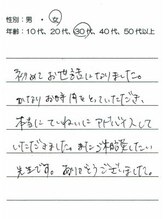 性別：男 ・ 女
年齢：10代、20代、30代、40代、50代以上
初めてお世話になりました。
かなりお時間をとっていただき、
本当にていねいにアドバイスして
いただきました。またご相談したい
先生です。ありがとうございました。